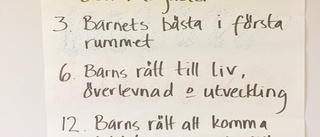 3. Barnets bästa i första
rummet
6. Barns rätt till liv,
överlevnad o utveckling
12. Barns rätt att komma